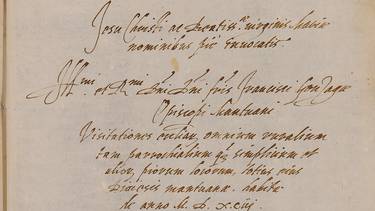 Jesu Christi ac Beatiss.e virginis Mariæ
nominibus pie invocatis.
Ill.mi et R.mi D.ni D.ni fris Francisci Gonzagæ
Episcopi Mantuani
Visitationes eccliar. omnium ruralium
tam parrochialium q. simplicium et
alior. piorum locorum, totius eius
Diocesis mantuanæ habitæ
de anno M. D. xciij